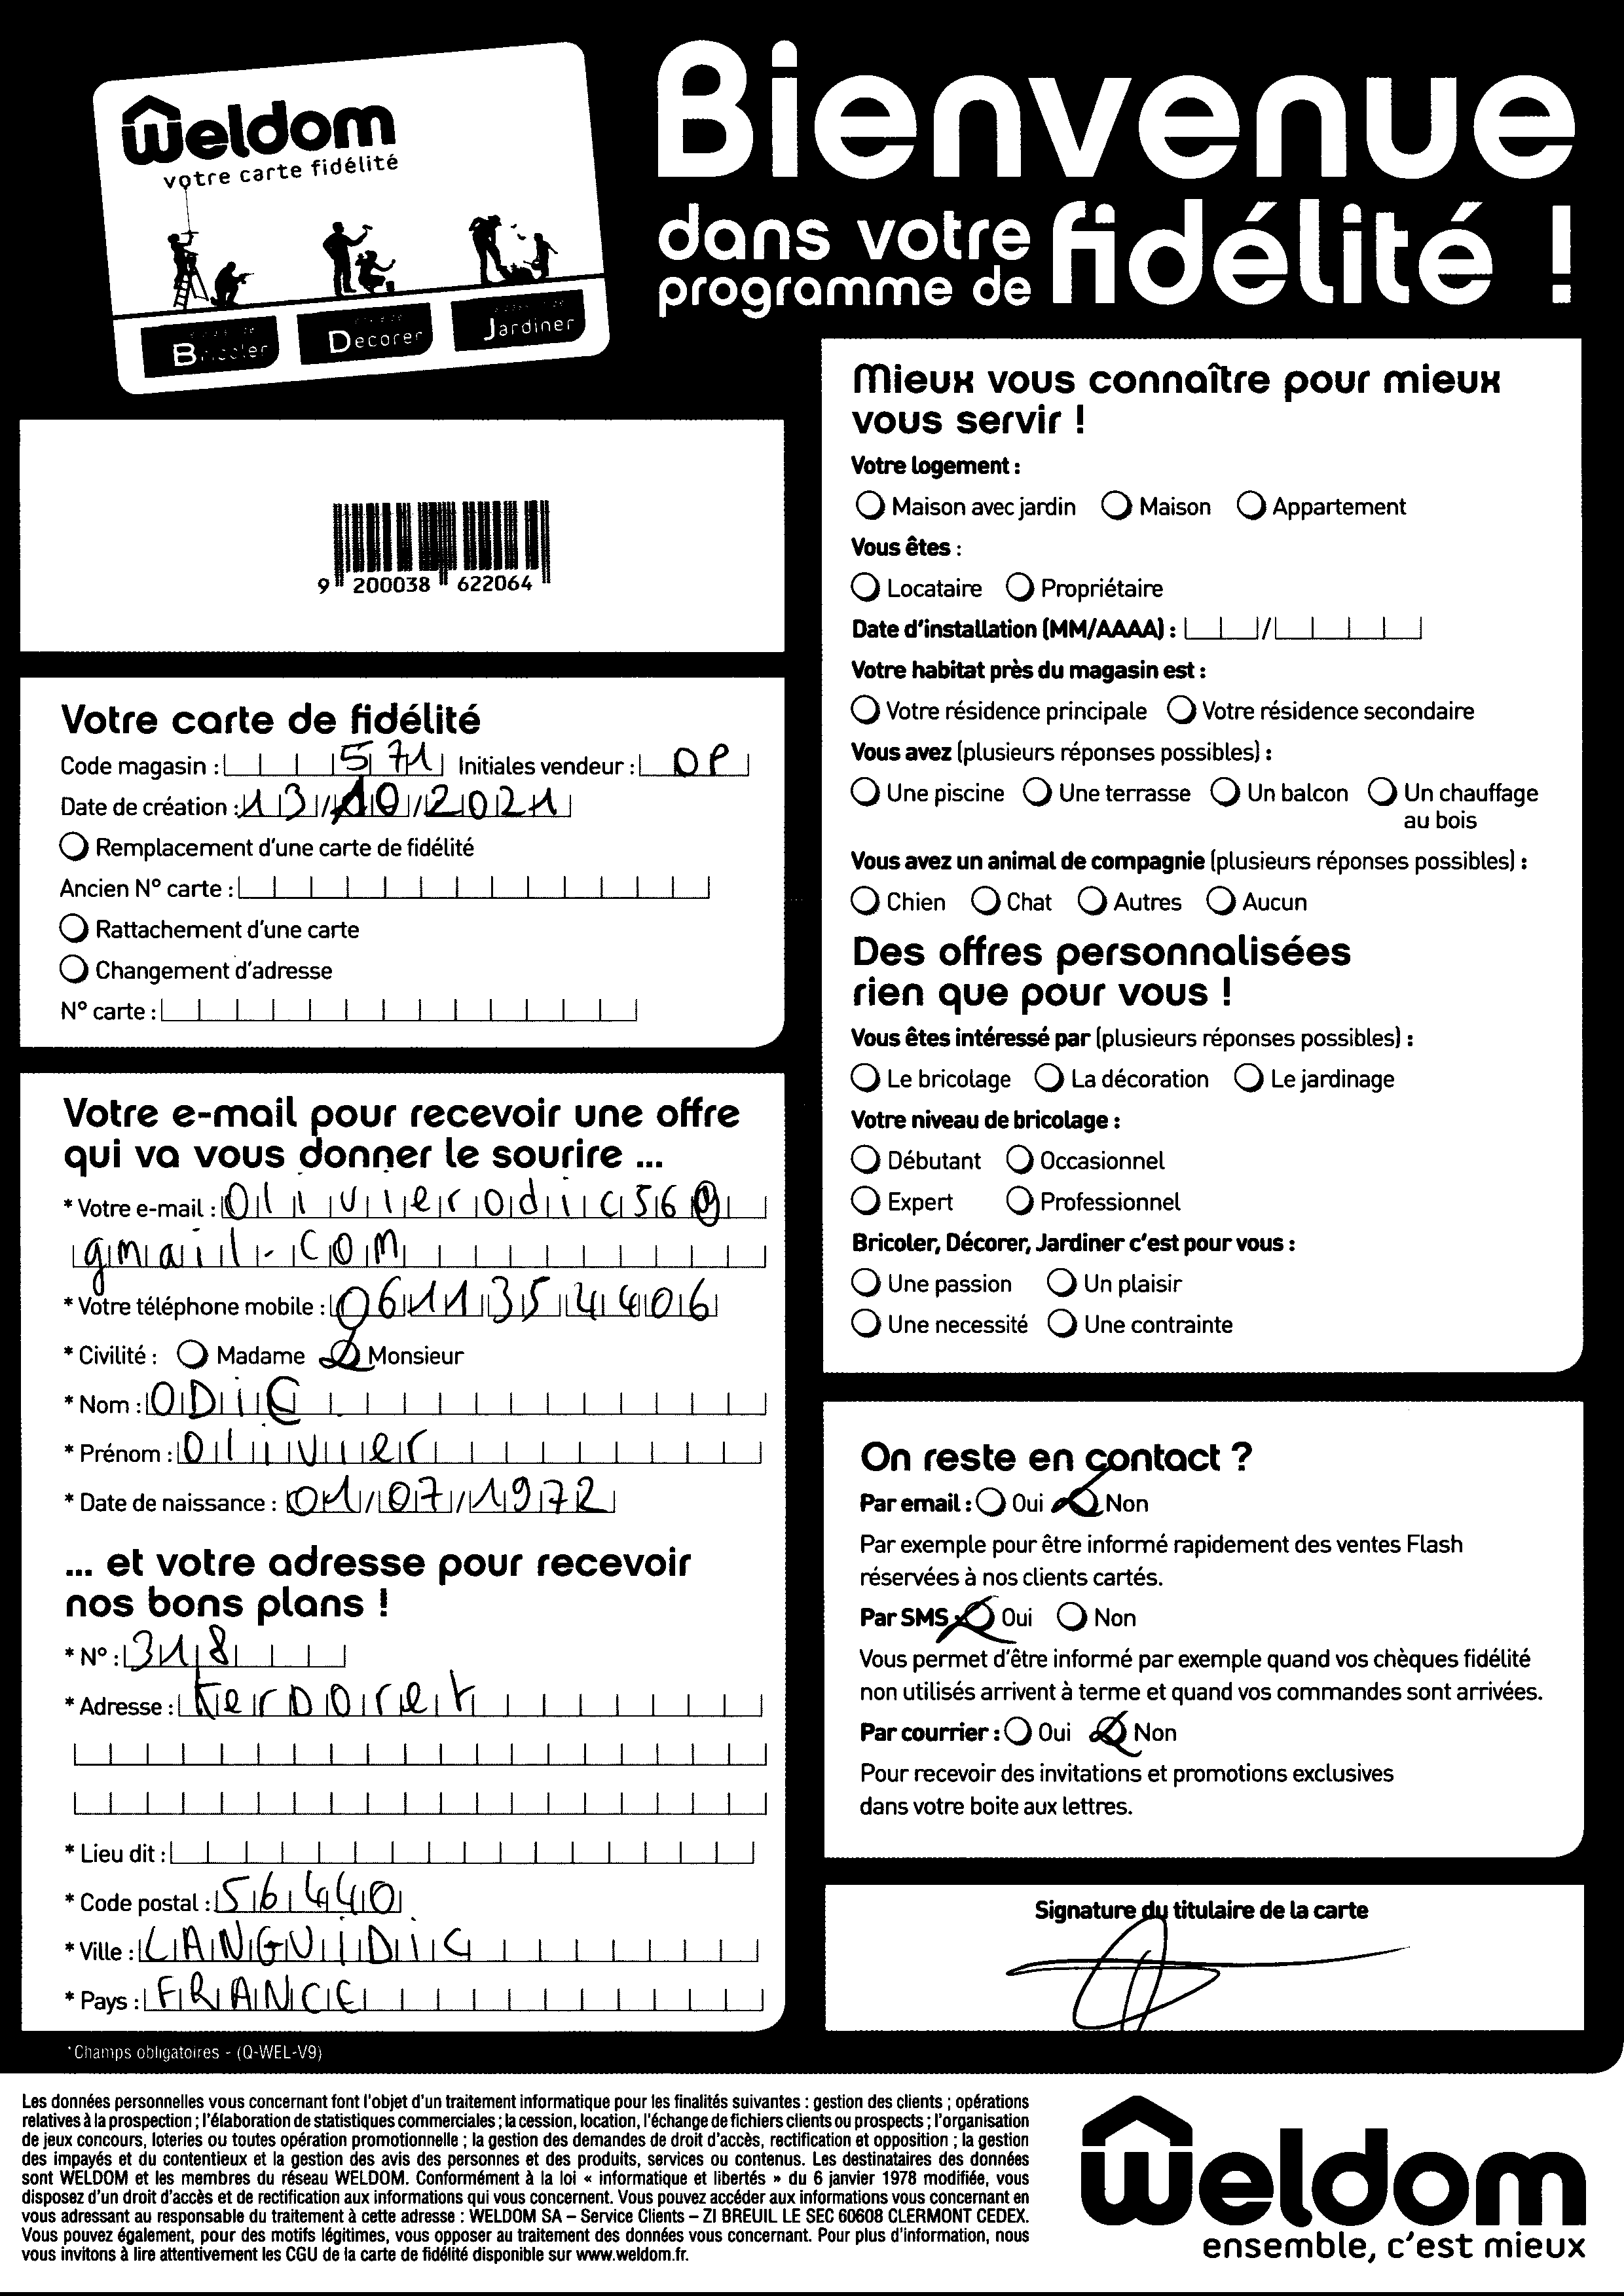 Weldom
votre carte fidélité
Bricoler
Decorer
Jardiner
Bienvenue
dans votre
programme de fidélité !
9 200038 622064
Votre carte de fidélité
Code magasin : 571 Initiales vendeur : OP
Date de création : 13/10/2021
Remplacement d'une carte de fidélité
Ancien N° carte :
Rattachement d'une carte
Changement d'adresse
N° carte :
Votre e-mail pour recevoir une offre
qui va vous donner le sourire ...
* Votre e-mail : Olivierodic56@
gmail.com
* Votre téléphone mobile : 0611354406
* Civilité : Madame Monsieur
* Nom : ODiC
* Prénom : Olivier
* Date de naissance : 01/07/1972
... et votre adresse pour recevoir
nos bons plans !
* N° : 318
* Adresse : KerDoret
* Lieu dit :
* Code postal : 56440
* Ville : LANGUiDiC
* Pays : FRANCE
*Champs obligatoires - (Q-WEL-V9)
Mieux vous connaître pour mieux
vous servir !
Votre logement :
Maison avec jardin Maison Appartement
Vous êtes :
Locataire Propriétaire
Date d'installation (MM/AAAA) : /
Votre habitat près du magasin est :
Votre résidence principale Votre résidence secondaire
Vous avez (plusieurs réponses possibles) :
Une piscine Une terrasse Un balcon Un chauffage
au bois
Vous avez un animal de compagnie (plusieurs réponses possibles) :
Chien Chat Autres Aucun
Des offres personnalisées
rien que pour vous !
Vous êtes intéressé par (plusieurs réponses possibles) :
Le bricolage La décoration Le jardinage
Votre niveau de bricolage :
Débutant Occasionnel
Expert Professionnel
Bricoler, Décorer, Jardiner c'est pour vous :
Une passion Un plaisir
Une necessité Une contrainte
On reste en contact ?
Par email : Oui Non
Par exemple pour être informé rapidement des ventes Flash
réservées à nos clients cartés.
Par SMS Oui Non
Vous permet d'être informé par exemple quand vos chèques fidélité
non utilisés arrivent à terme et quand vos commandes sont arrivées.
Par courrier : Oui Non
Pour recevoir des invitations et promotions exclusives
dans votre boite aux lettres.
Signature du titulaire de la carte
Les données personnelles vous concernant font l'objet d'un traitement informatique pour les finalités suivantes : gestion des clients ; opérations
relatives à la prospection ; l'élaboration de statistiques commerciales ; la cession, location, l'échange de fichiers clients ou prospects ; l'organisation
de jeux concours, loteries ou toutes opération promotionnelle ; la gestion des demandes de droit d'accès, rectification et opposition ; la gestion
des impayés et du contentieux et la gestion des avis des personnes et des produits, services ou contenus. Les destinataires des données
sont WELDOM et les membres du réseau WELDOM. Conformément à la loi « informatique et libertés » du 6 janvier 1978 modifiée, vous
disposez d'un droit d'accès et de rectification aux informations qui vous concernent. Vous pouvez accéder aux informations vous concernant en
vous adressant au responsable du traitement à cette adresse : WELDOM SA – Service Clients – ZI BREUIL LE SEC 60608 CLERMONT CEDEX.
Vous pouvez également, pour des motifs légitimes, vous opposer au traitement des données vous concernant. Pour plus d'information, nous
vous invitons à lire attentivement les CGU de la carte de fidélité disponible sur www.weldom.fr.
Weldom
ensemble, c'est mieux